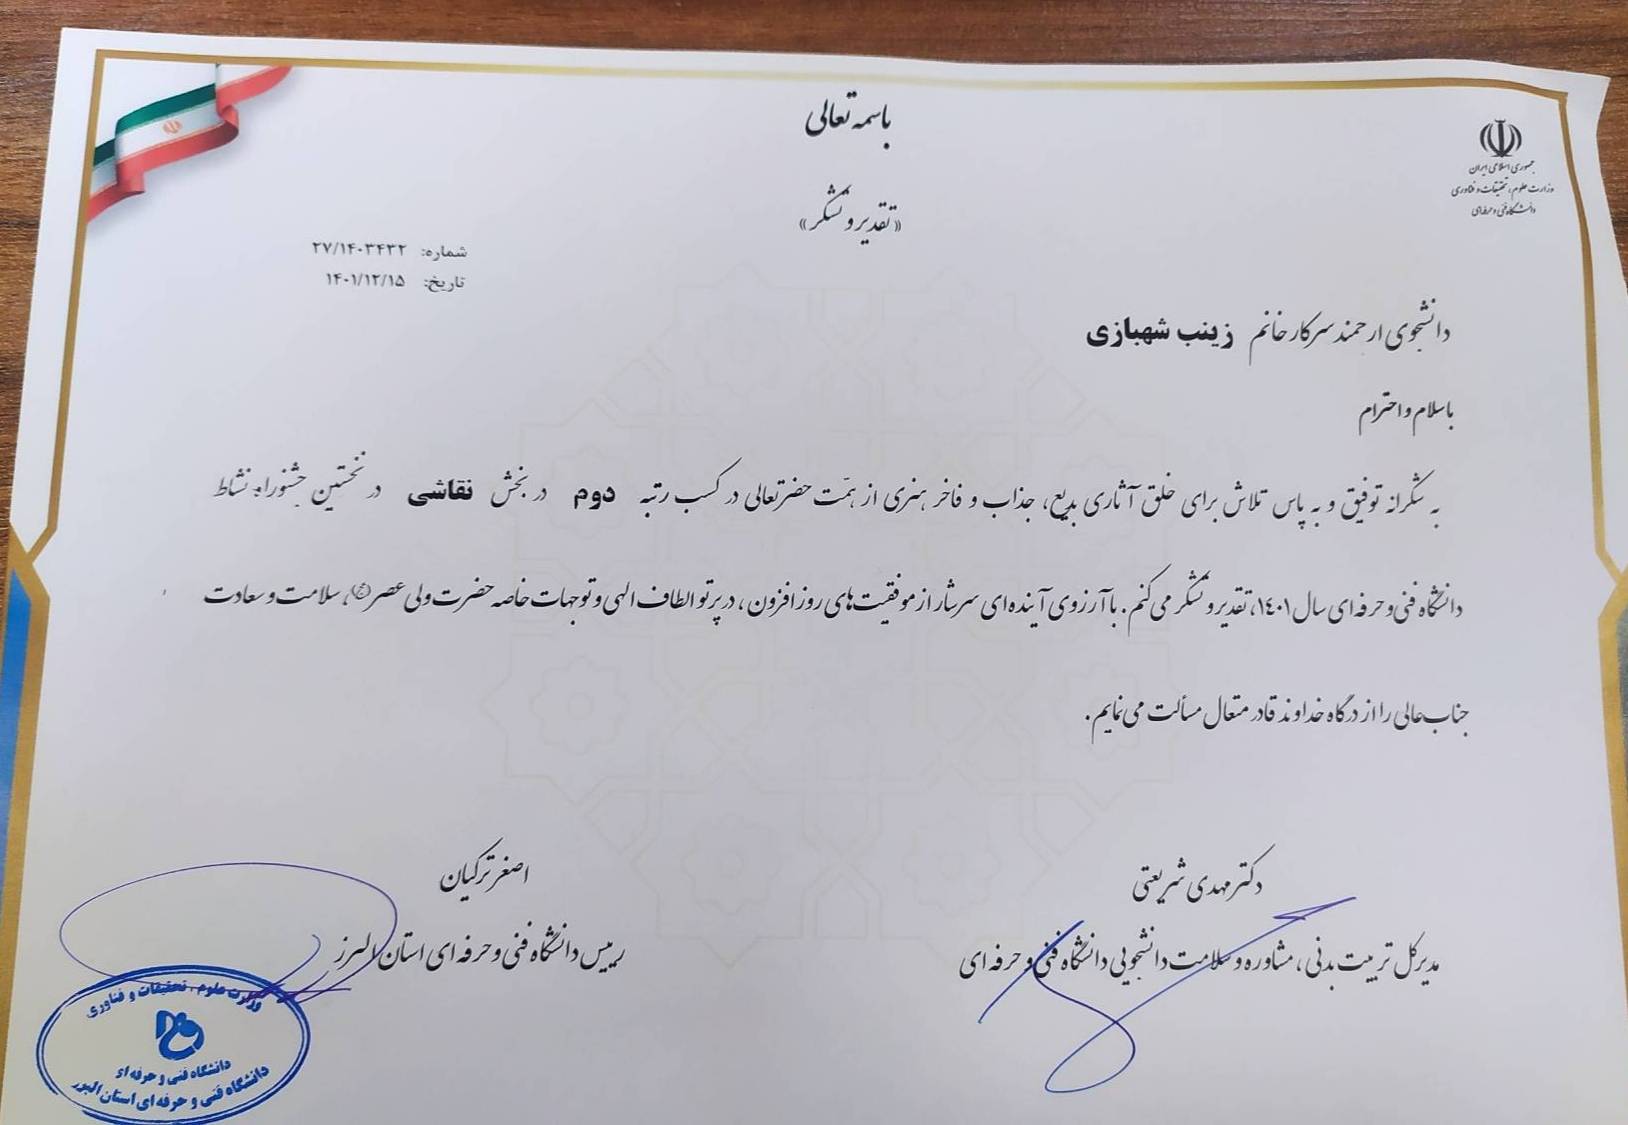 باسمه تعالی
جمهوری اسلامی ایران
وزارت علوم، تحقیقات و فناوری
دانشگاه فنی و حرفه‌ای
«تقدیر و تشکر»
شماره: ۲۷/۱۴۰۳۴۳۲
تاریخ: ۱۴۰۱/۱۲/۱۵
دانشجوی ارجمند سرکار خانم زینب شهبازی
با سلام و احترام
به شکرانه توفیق و به پاس تلاش برای خلق آثاری بدیع، جذاب و فاخر هنری از همّت حضرتعالی در کسب رتبه دوم در بخش نقاشی در نخستین جشنواره نشاط
دانشگاه فنی و حرفه‌ای سال ۱۴۰۱، تقدیر و تشکر می‌کنم. با آرزوی آینده‌ای سرشار از موفقیت‌های روزافزون، در پرتو الطاف الهی و توجهات خاصه حضرت ولی عصر(عج)، سلامت و سعادت
جناب‌عالی را از درگاه خداوند قادر متعال مسألت می‌نمایم.
دکتر مهدی شریعتی
مدیرکل تربیت بدنی، مشاوره و سلامت دانشجویی دانشگاه فنی و حرفه‌ای
اصغر ترکیان
رییس دانشگاه فنی و حرفه‌ای استان البرز
وزارت علوم، تحقیقات و فناوری
دانشگاه فنی و حرفه ای
دانشگاه فنی و حرفه ای استان البرز